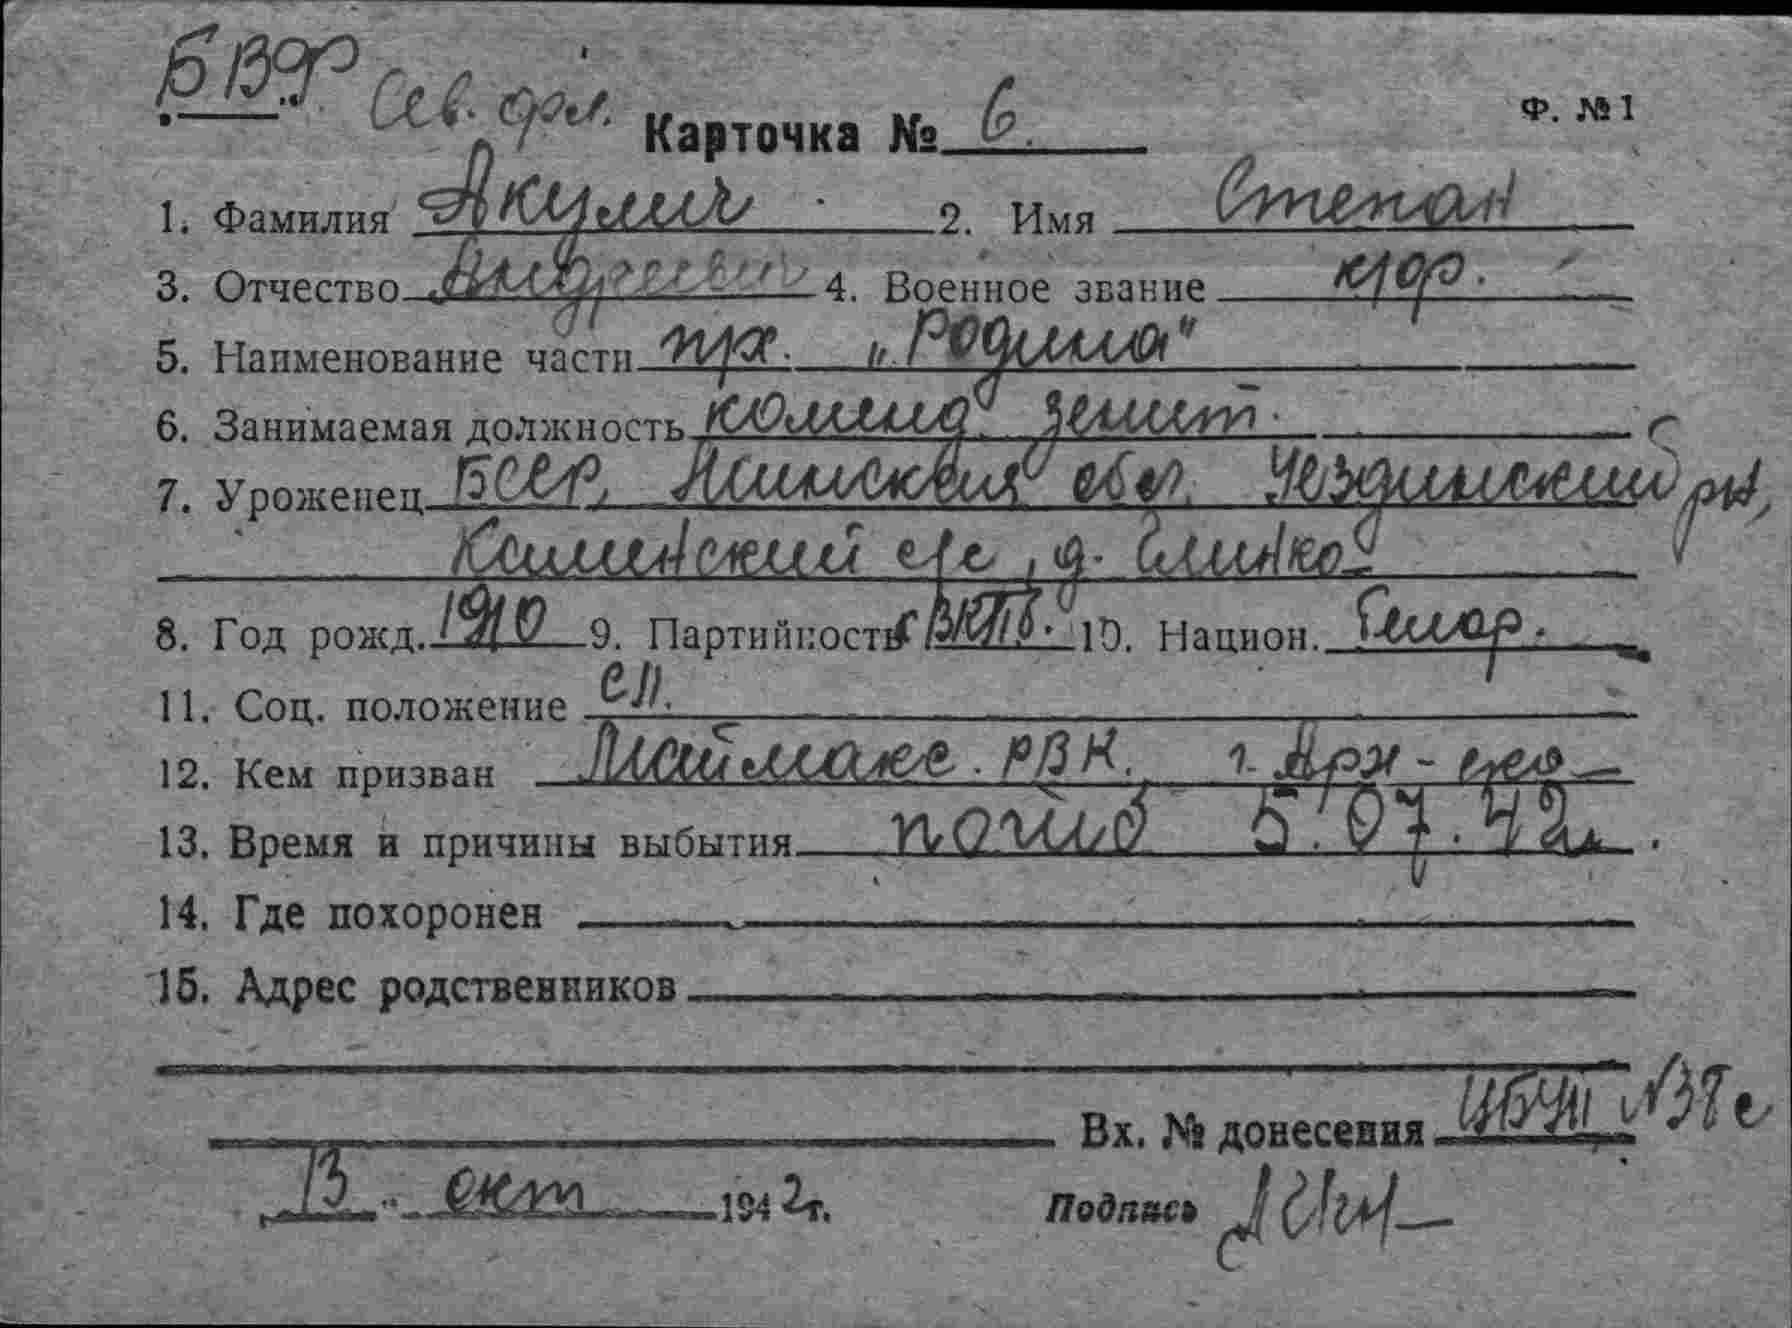 БВФ Сев. фл.
Карточка № 6.
Ф. № 1
1. Фамилия Акулич 2. Имя Степан
3. Отчество Андреевич 4. Военное звание к/ф.
5. Наименование части п/х. „Родина"
6. Занимаемая должность коменд. зенит.
7. Уроженец БССР, Минская обл. Уездинский р-н,
Каминский с/с, д. Глинка
8. Год рожд. 1910 9. Партийность ВКПб. 10. Национ. белор.
11. Соц. положение сл.
12. Кем призван Маймакс. РВК. г. Арх-ска
13. Время и причины выбытия погиб 5.07.42г.
14. Где похоронен
15. Адрес родственников
Вх. № донесения №38с
13 окт 1942г. Подпись